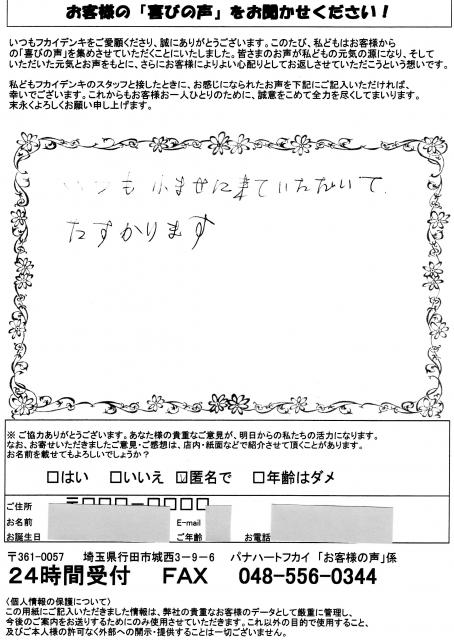 お客様の「喜びの声」をお聞かせください！
いつもフカイデンキをご愛顧くださり、誠にありがとうございます。このたび、私どもはお客様から
の「喜びの声」を集めさせていただくことにいたしました。皆さまのお声が私どもの元気の源になり、そして
いただいた元気とお声をもとに、さらにお客様によりよい心配りとしてお返しさせていただこうという想いです。
私どもフカイデンキのスタッフと接したときに、お感じになられたお声を下記にご記入いただければ、
幸いでございます。これからもお客様お一人ひとりのために、誠意をこめて全力を尽くしてまいります。
末永くよろしくお願い申し上げます。
いつも小ませに来ていただいて
たすかります
※ ご協力ありがとうございます。あなた様の貴重なご意見が、明日からの私たちの活力になります。
なお、お寄せいただきましたご意見・ご感想は、店内・紙面などで紹介させて頂くことがあります。
お名前を載せてもよろしいでしょうか？
□はい □いいえ ☑匿名で □年齢はダメ
ご住所 〒□□□-□□□□
お名前 E-mail
お誕生日 ご年齢 お電話
〒361-0057 埼玉県行田市城西3－9－6 パナハートフカイ 「お客様の声」係
24時間受付 FAX 048-556-0344
〈個人情報の保護について〉
この用紙にご記入いただきました情報は、弊社の貴重なお客様のデータとして厳重に管理し、
今後のご案内をお送りするためにのみ使用させていただきます。これ以外の目的で使用すること、
及びご本人様の許可なく外部への開示・提供することは一切ございません。